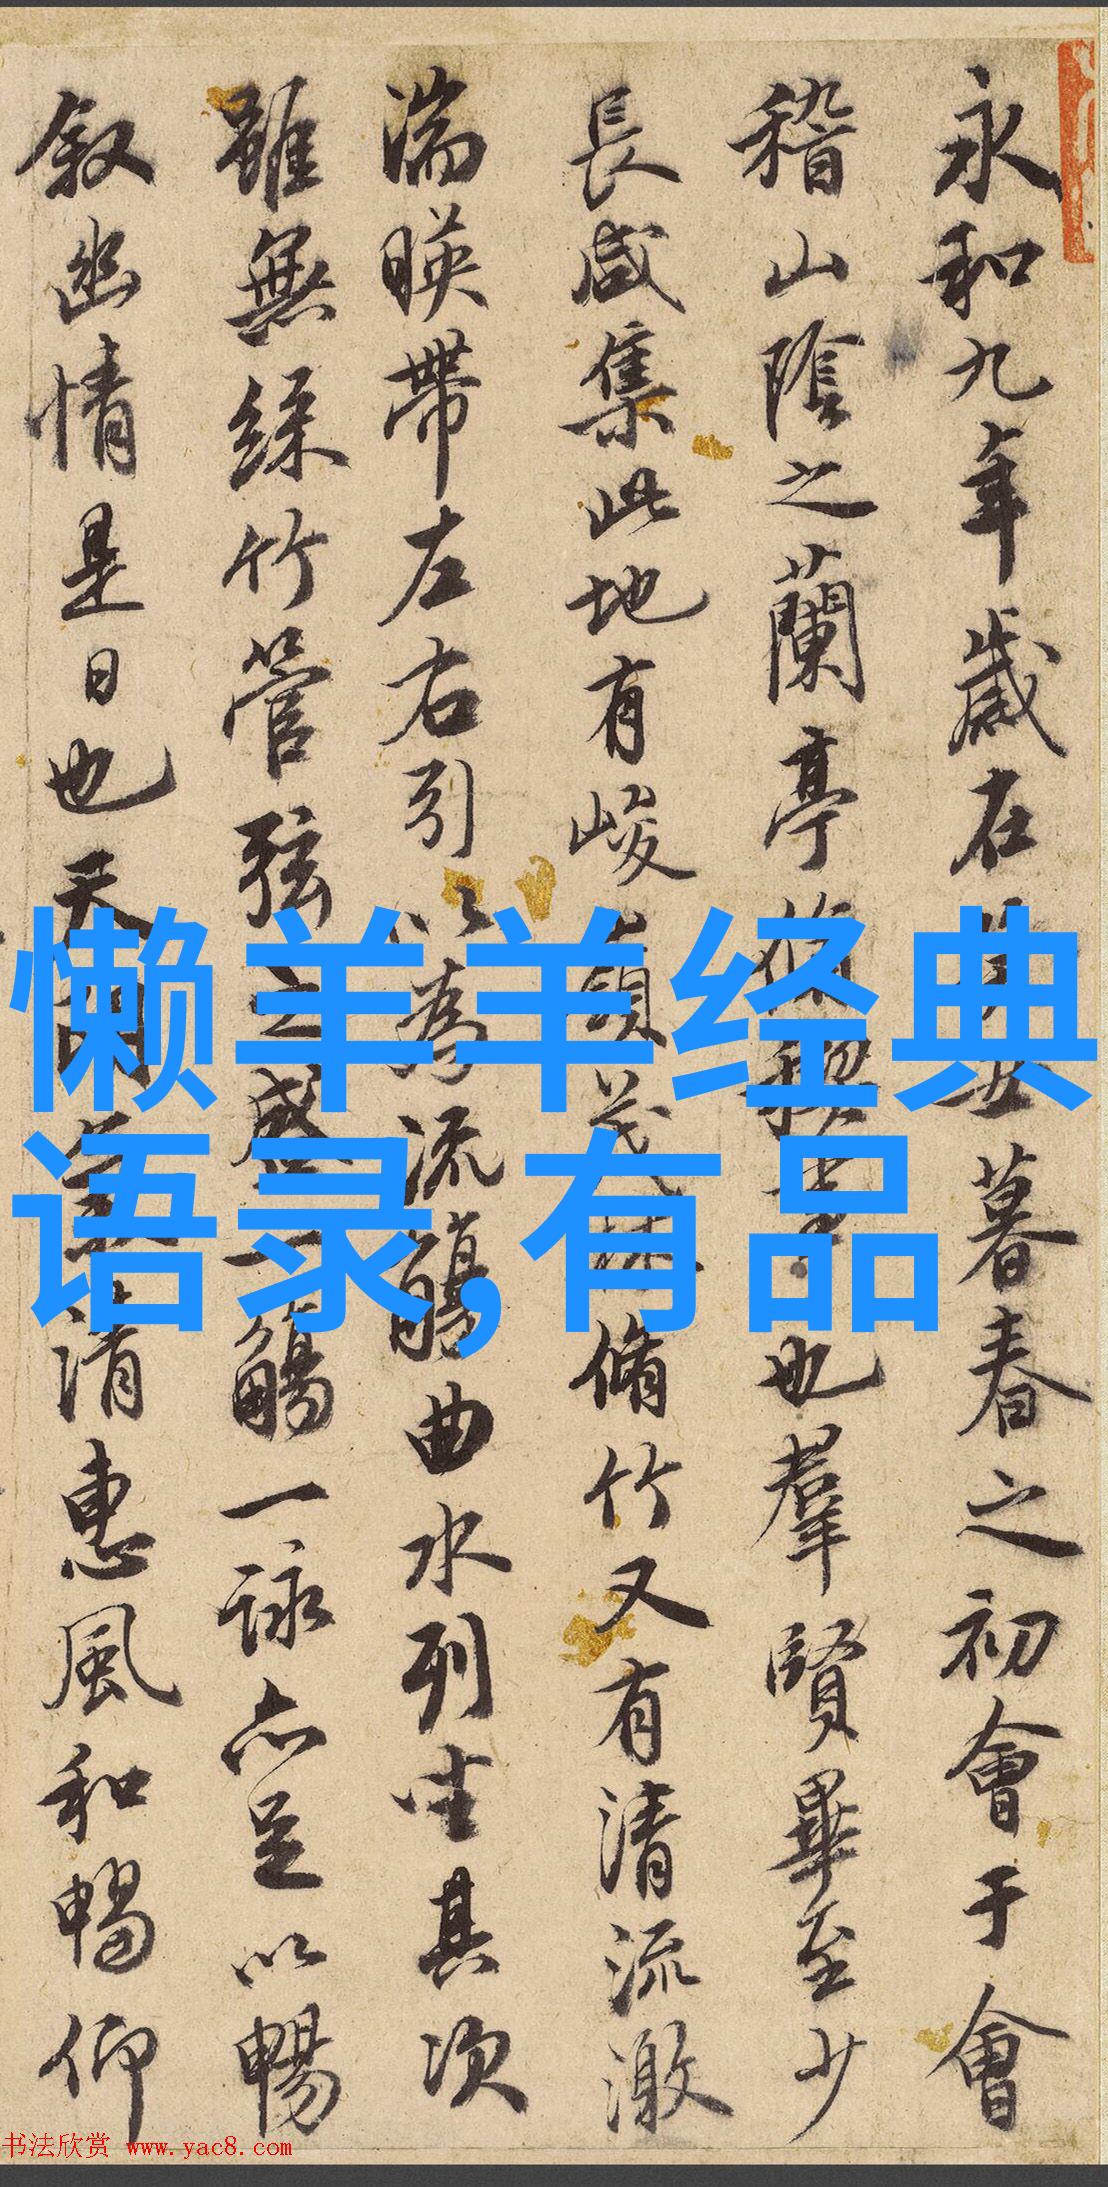 永和九年歲在癸丑暮春之初會于會
稽山陰之蘭亭脩稧事也羣賢畢至少
長咸集此地有峻領茂林脩竹又有清流激
湍暎帶左右引以為流觴曲水列坐其次
雖無絲竹管弦之盛一觴一詠亦足以暢
敘幽情是日也天朗氣清惠風和暢仰
懒羊羊经典
语录,有品
书法欣赏 www.yac8.com